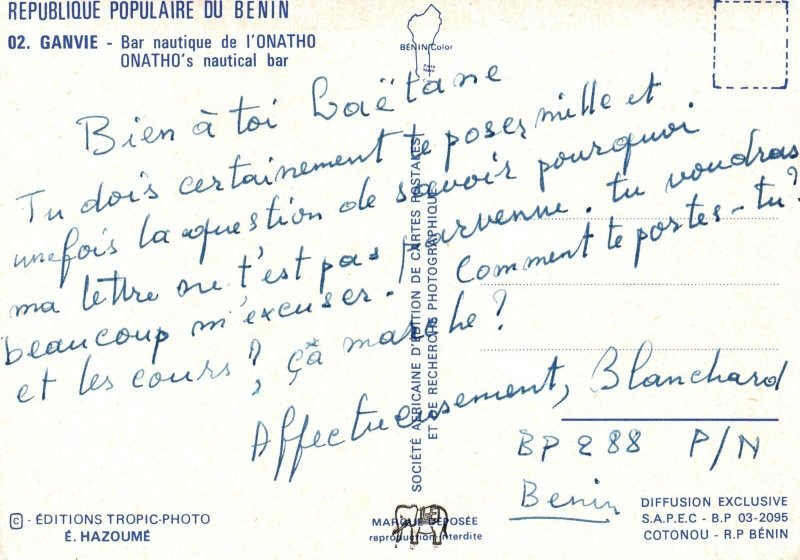 REPUBLIQUE POPULAIRE DU BENIN
02. GANVIE - Bar nautique de l'ONATHO
ONATHO's nautical bar
BÉNIN Color
Bien à toi Laëtane
Tu dois certainement te poser mille et
une fois la question de savoir pourquoi
ma lettre ne t'est pas parvenue. tu voudras
beaucoup m'excuser. Comment te portes-tu?
et les cours? ça marche?
Affectueusement, Blanchard
BP 288 P/N
Benin
SOCIÉTÉ AFRICAINE D'ÉDITION DE CARTES POSTALES
ET DE RECHERCHE PHOTOGRAPHIQUES
© - ÉDITIONS TROPIC-PHOTO
É. HAZOUMÉ
MARQUE DÉPOSÉE
reproduction interdite
DIFFUSION EXCLUSIVE
S.A.P.E.C - B.P 03-2095
COTONOU - R.P BÉNIN